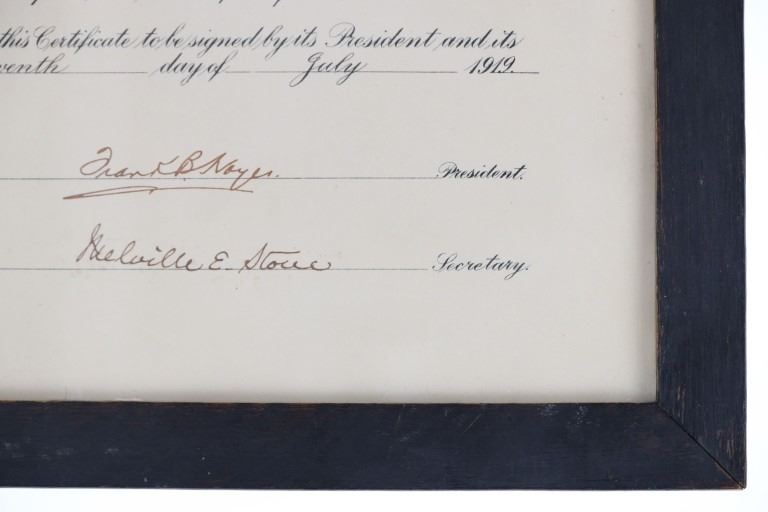 this Certificate to be signed by its President and its
venth day of July 1919.
Frank B. Noyes. President.
Melville E. Stone Secretary.